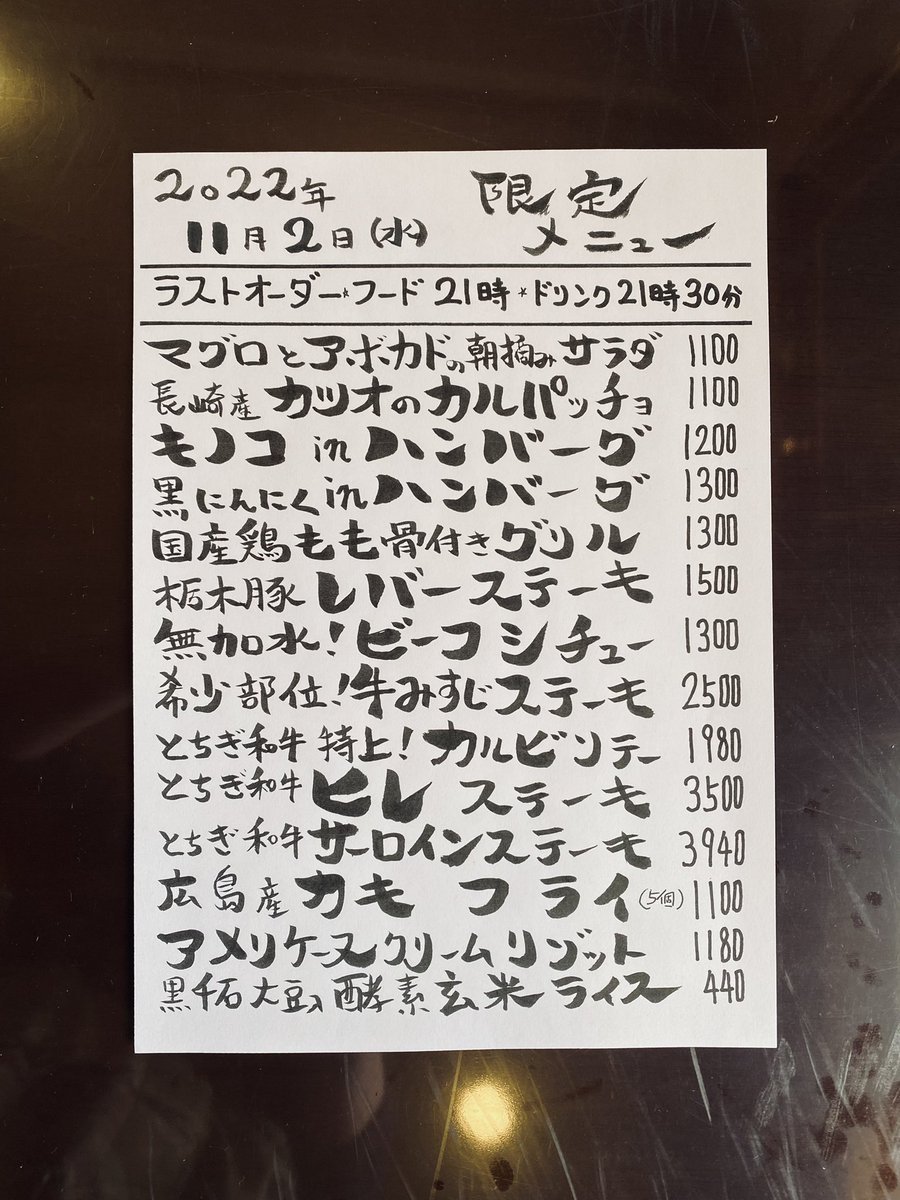 2022年 限定
11月2日(水) メニュー
ラストオーダー*フード 21時*ドリンク21時30分
マグロとアボカドの朝摘みサラダ 1100
長崎産カツオのカルパッチョ 1100
キノコinハンバーグ 1200
黒にんにくinハンバーグ 1300
国産鶏もも骨付きグリル 1300
栃木豚レバーステーキ 1500
無加水!ビーフシチュー 1300
希少部位!牛みすじステーキ 2500
とちぎ和牛 特上!カルビソテー 1980
とちぎ和牛ヒレステーキ 3500
とちぎ和牛サーロインステーキ 3940
広島産カキフライ(5個) 1100
アメリケーヌクリームリゾット 1180
黒千石大豆入酵素玄米ライス 440